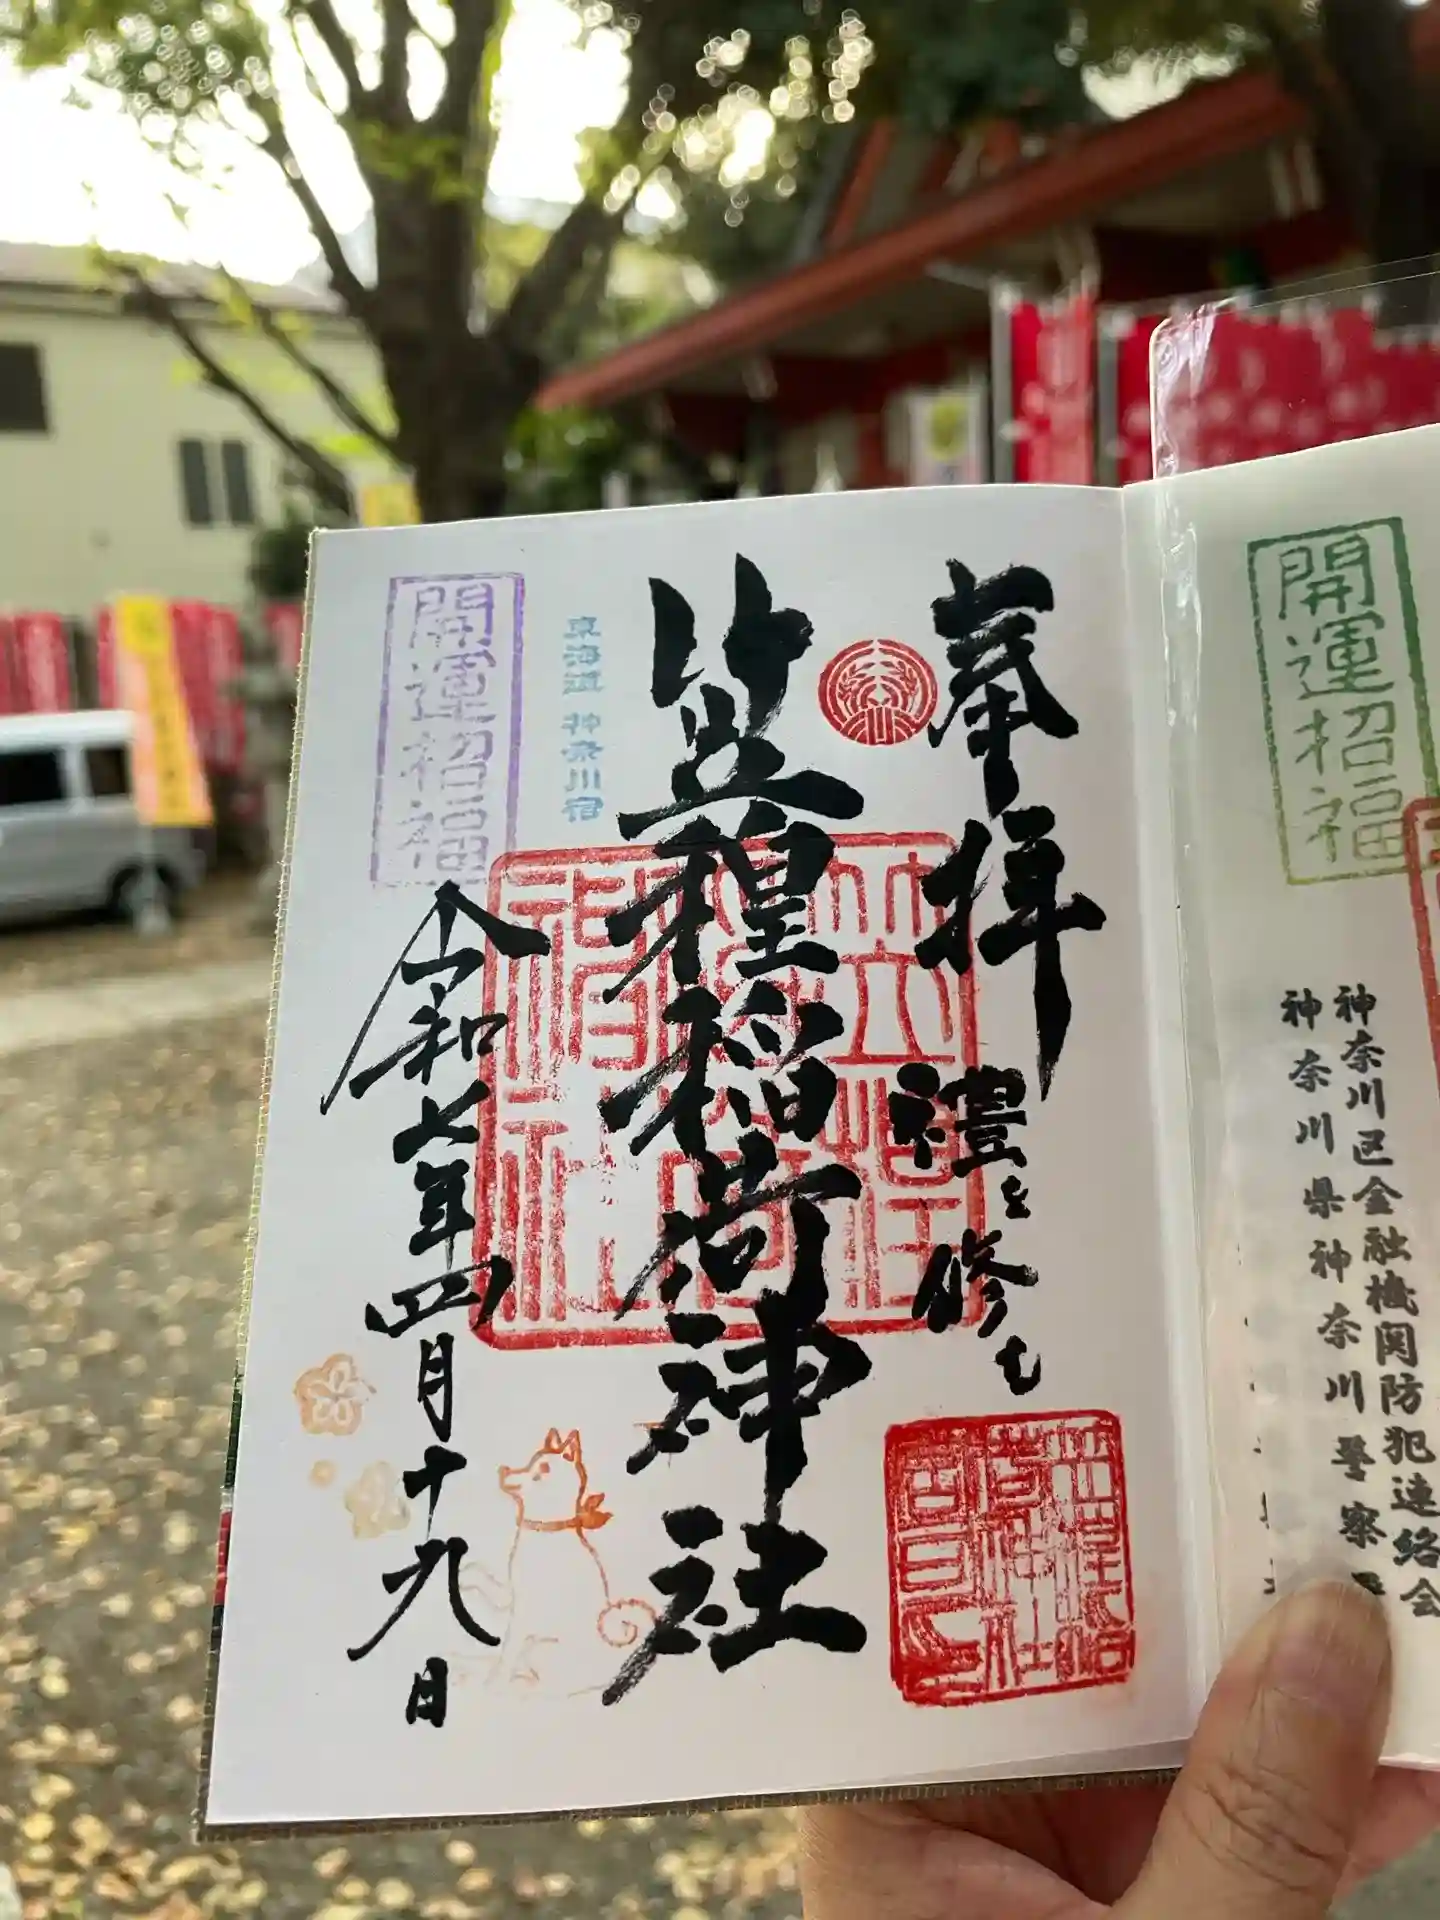 開運招福
神奈川区金融機関防犯連絡会
神奈川県神奈川警察署
奉拝
禮を修む
笠䅣稲荷神社
東海道 神奈川宿
開運招福
令和七年四月十九日